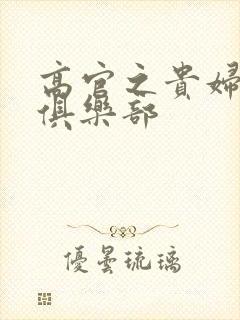 高官之貴婦
俱樂部
優曇琉璃